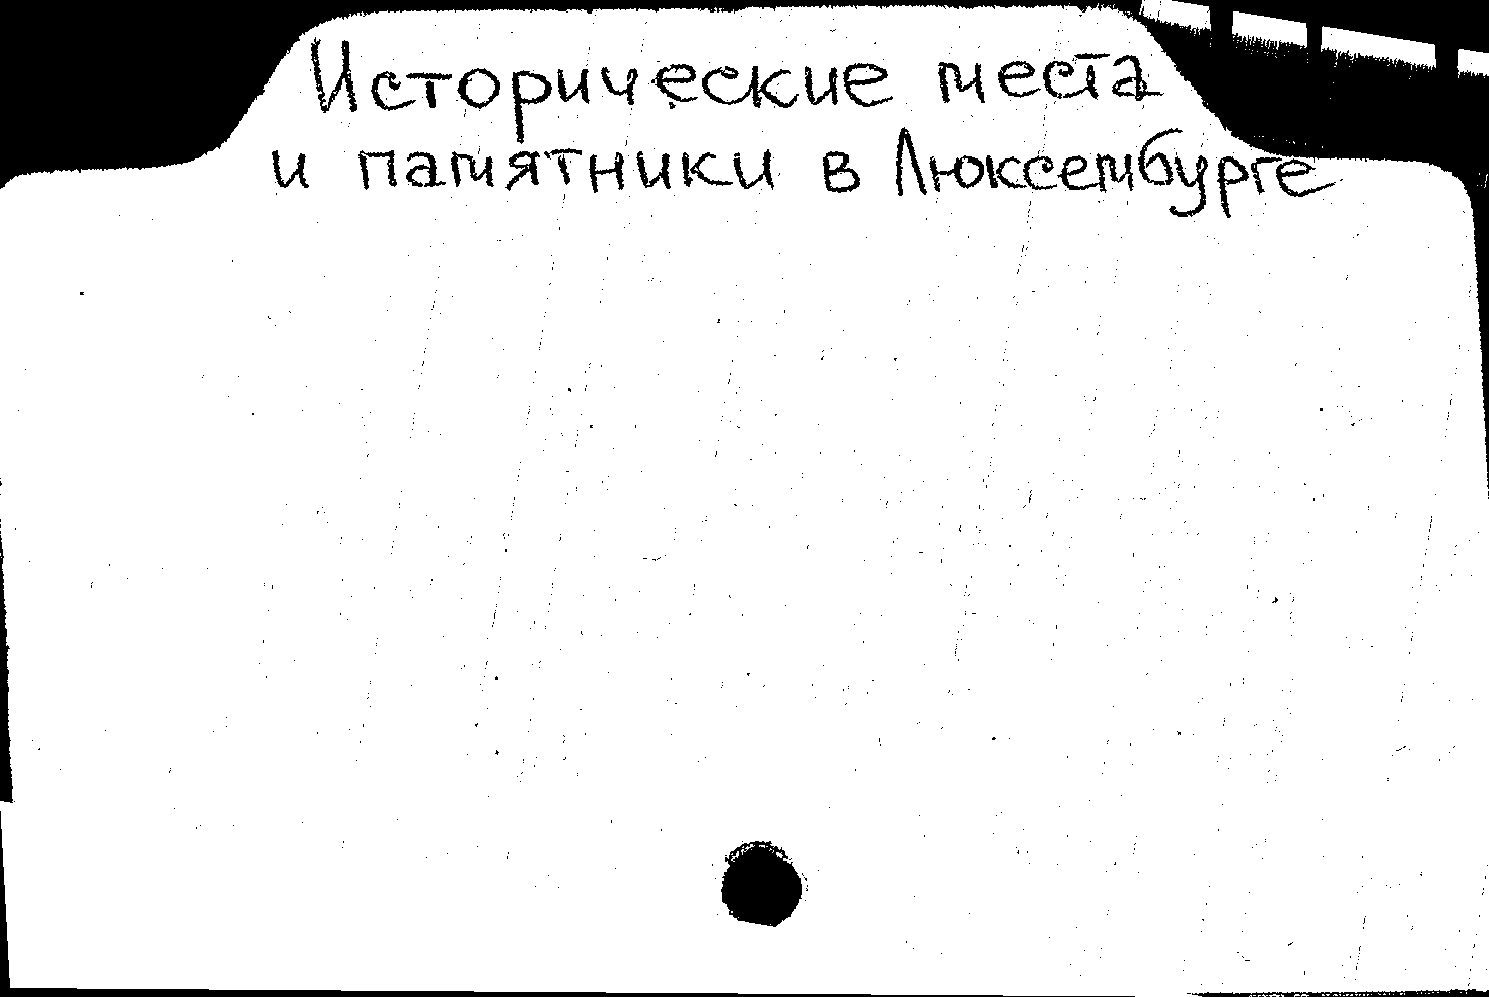 Исторические места
и памятники в Люксембурге